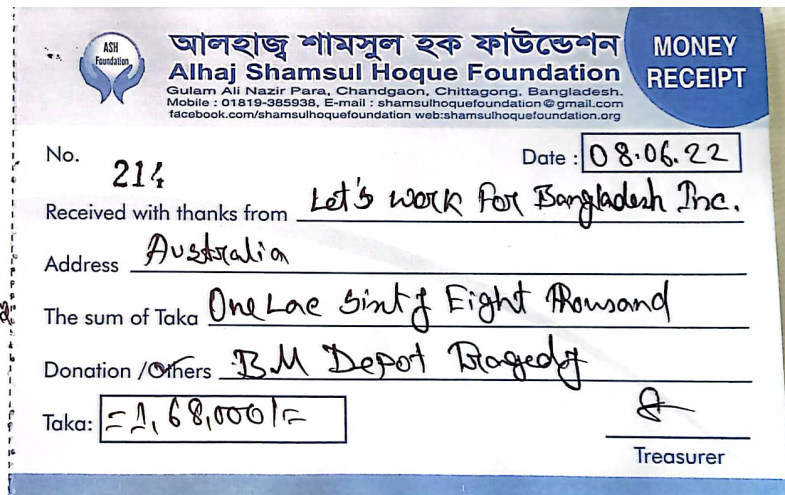 ASH
Foundation
আলহাজ্ব শামসুল হক ফাউন্ডেশন
Alhaj Shamsul Hoque Foundation
Gulam Ali Nazir Para, Chandgaon, Chittagong, Bangladesh.
Mobile : 01819-385938, E-mail : shamsulhoquefoundation@gmail.com
facebook.com/shamsulhoquefoundation web:shamsulhoquefoundation.org
MONEY
RECEIPT
No. 214
Date : 08.06.22
Received with thanks from Let's work For Bangladesh Inc.
Address Australia
The sum of Taka One Lac Sixty Eight Thousand
Donation /Others BM Depot Tragedy
Taka: =1,68,000/=
Treasurer